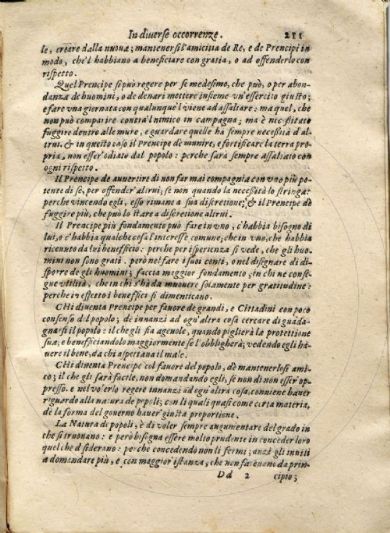 In diverse occorrenze. 211
le, creare dalla nuoua; mantenersi l'amicitia de Re, e de Prencipi in
modo, ch'l habbiano a beneficiare con gratia, o ad offenderlo con
rispetto.
Quel Prencipe si può regger per se medesimo, che può, o per abon-
danza de huomini, o de denari mettere insieme un'essercito giusto;
e fare una giornata con qualunque 'l viene ad assaltare: ma quel, che
non può comparire contra'l nimico in campagna; ma è necessitato
fuggire dentro alle mure, e guardare quelle ha sempre necessità d'al-
tri, & in questo caso il Prencipe de munire, e fortificare la terra pro-
pria, non esser odiato dal popolo: perche sarà sempre assaltato con
ogni rispetto.
Il Prencipe de auuertire di non far mai compagnia con uno più po-
tente di se, per offender altrui, se non quando la necessità lo stringa:
perche vincendo egli, esso rimane a sua discretione; & il Prencipe de
fuggire più, che può lo stare a discretione altrui.
Il Prencipe più fondamento può fare in uno, c'habbia bisogno di
lui, o c'habbia qualche cosa l'interesse comune; che in vno, che habbia
riceuuto da lui beneficio: perche per isperienza si vede, che gli huo-
mini non sono grati. però nel fare i suoi conti, o nel disegnare di di-
sporre de gli huomini; faccia maggior fondamento, in chi ne conse-
gue utilità, che in chi s'hà da muouere solamente per gratitudine:
perche in effetto i beneficij si dimenticano.
CHi diuenta Prencipe per fauore de grandi, e Cittadini con poco
consenso dil popolo; dè innanzi ad ogn'altra cosa cercare di guada-
gnarsi il popolo: il che gli fia ageuole, quando piglierà la protettione
sua; e beneficiandolo maggiormente se l'obbligherà, vedendo egli ha-
uere il bene, da chi aspettaua il male.
CHi diuenta Prencipe col fauore del popolo, dè mantenerlosi ami-
co; il che gli sarà facile, non domandando egli, se non di non esser op-
presso. e nel voerlo regere innanzi ad ogni altra cosa, conuiene hauer
riguardo alla natura de popoli; con li quali quasi come certa materia,
dè la forma del gouerno hauer giusta proportione.
La Natura di popoli, è di voler sempre augumentare del grado in
che si ruouano: e però bisogna essere molto prudente in conceder loro
quel che desiderano: perche concedendo non si fermi; anzi gli inuiti
a domandare più, e con maggior istanza, che non faceuono da prin-
Dd 2 cipio;